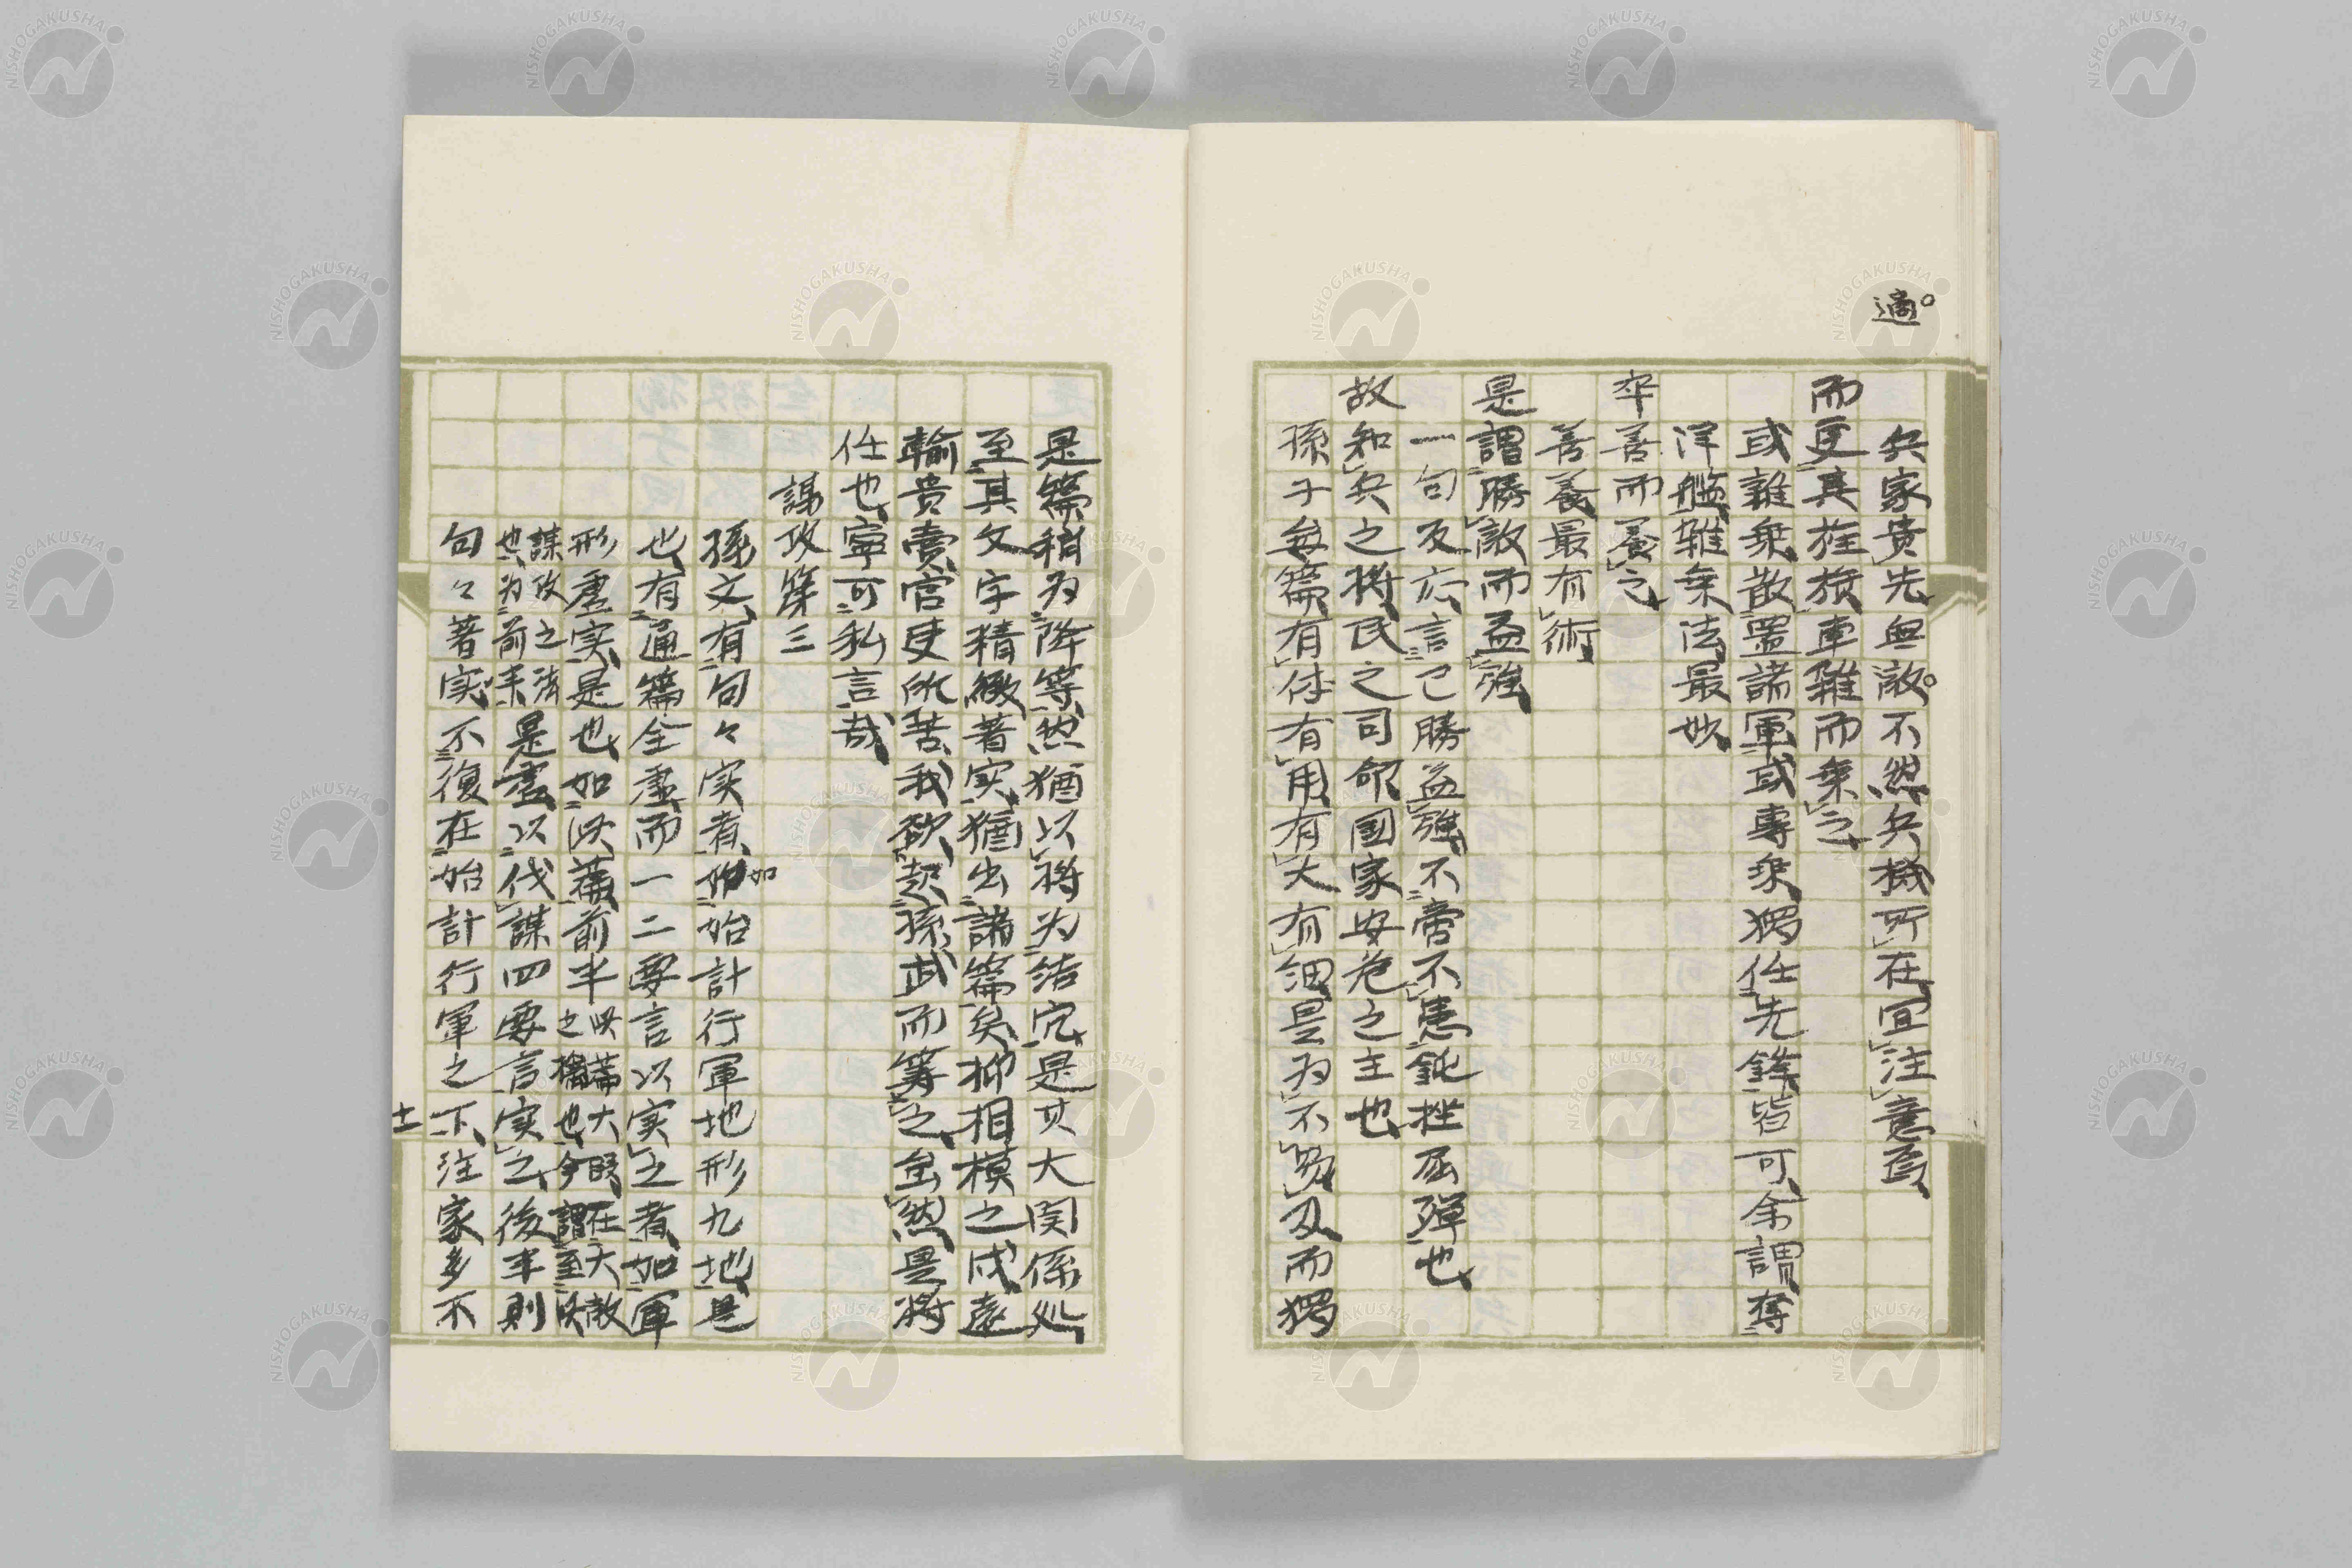 適
兵家貴先無敵不然兵機所在宜注意焉
而更其旌旗車雜而乗之
或雜乗散置諸軍或專乗獨任先鋒皆可余謂奪
洋艦雜乗法最妙
卒善而養之
善養最有術
是謂勝敵而益強
一句反応言已勝益強不啻不憊鈍挫屈殫也
故知兵之将民之司命国家安危之主也
孫子每篇有体有用有大有細是為不易及而獨
是篇稍為降等然猶以将为結冗是其大関係処
至其文字精緻著実猶出諸篇矣抑相模之戍遠
輸貴賣官吏所苦我欲起孫武而籌之虽然是将
任也寧可私言哉
謀攻第三
孫文有句々実者如始計行軍地形九地是
也有通篇全虚而一二要言以実之者如軍
形虚実是也如此篇前半此篇大段在大敵之機也今謂至此
謀攻之法也为前半是虚以伐謀四要言実之後半則
句々著実不復在始計行軍之下注家多不
士
NISHOGAKUSHA